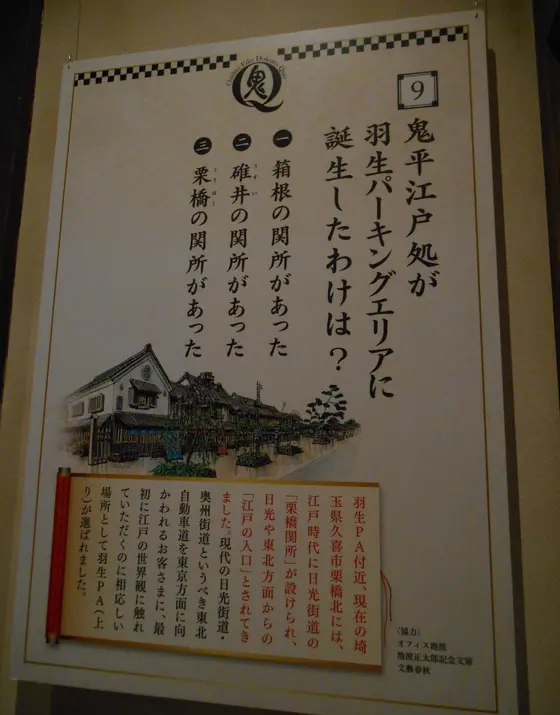 鬼
Q
9
鬼平江戸処が
羽生パーキングエリアに
誕生したわけは？
一 箱根の関所があった
二 碓井の関所があった
うすい
三 栗橋の関所があった
くりはし
羽生PA付近、現在の埼
玉県久喜市栗橋北には、
江戸時代に日光街道の
「栗橋関所」が設けられ、
日光や東北方面からの
「江戸の入口」とされてき
ました。現代の日光街道・
奥州街道というべき東北
自動車道を東京方面に向
かわれるお客さまに、最
初に江戸の世界観に触れ
ていただくのに相応しい
場所として羽生PA（上
り）が選ばれました。
〈協力〉
オフィス池波
池波正太郎記念文庫
文藝春秋